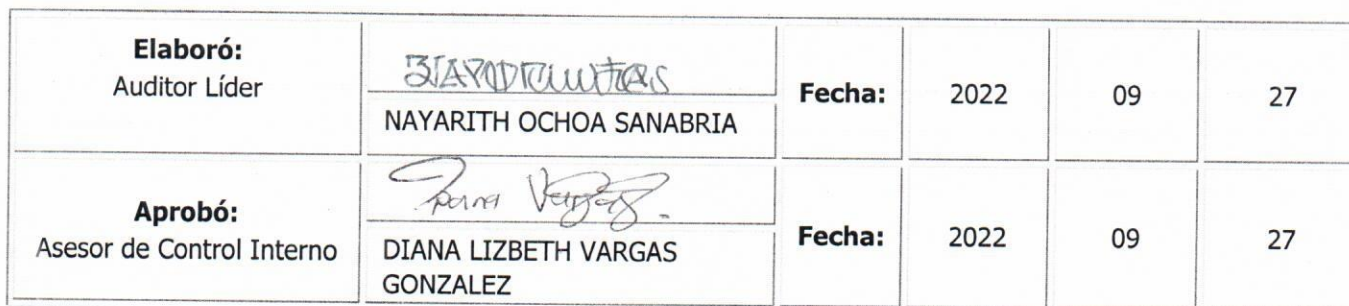 Elaboró:
Auditor Líder
NAYARITH OCHOA SANABRIA
Fecha: 2022 09 27
Aprobó:
Asesor de Control Interno
Diana Vargas.
DIANA LIZBETH VARGAS
GONZALEZ
Fecha: 2022 09 27